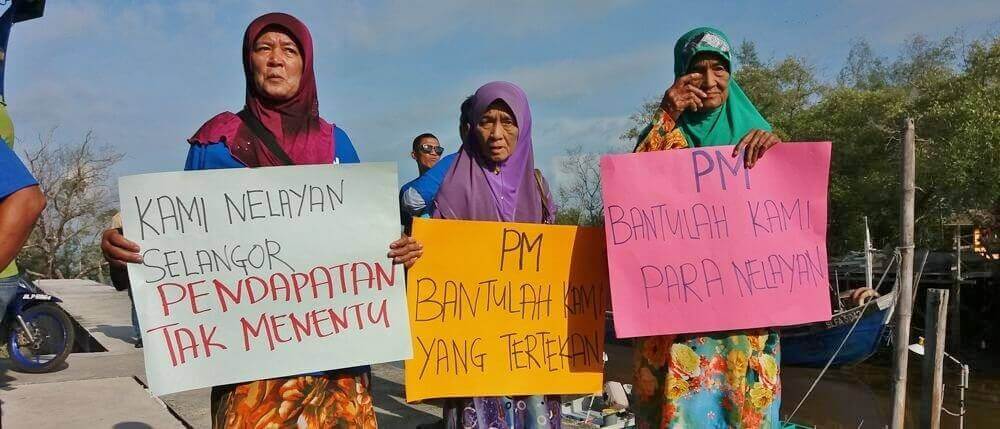 KAMI NELAYAN
SELANGOR
PENDAPATAN
TAK MENENTU
PM
BANTULAH KAMI
YANG TERTEKAN
PM
BANTULAH KAMI
PARA NELAYAN